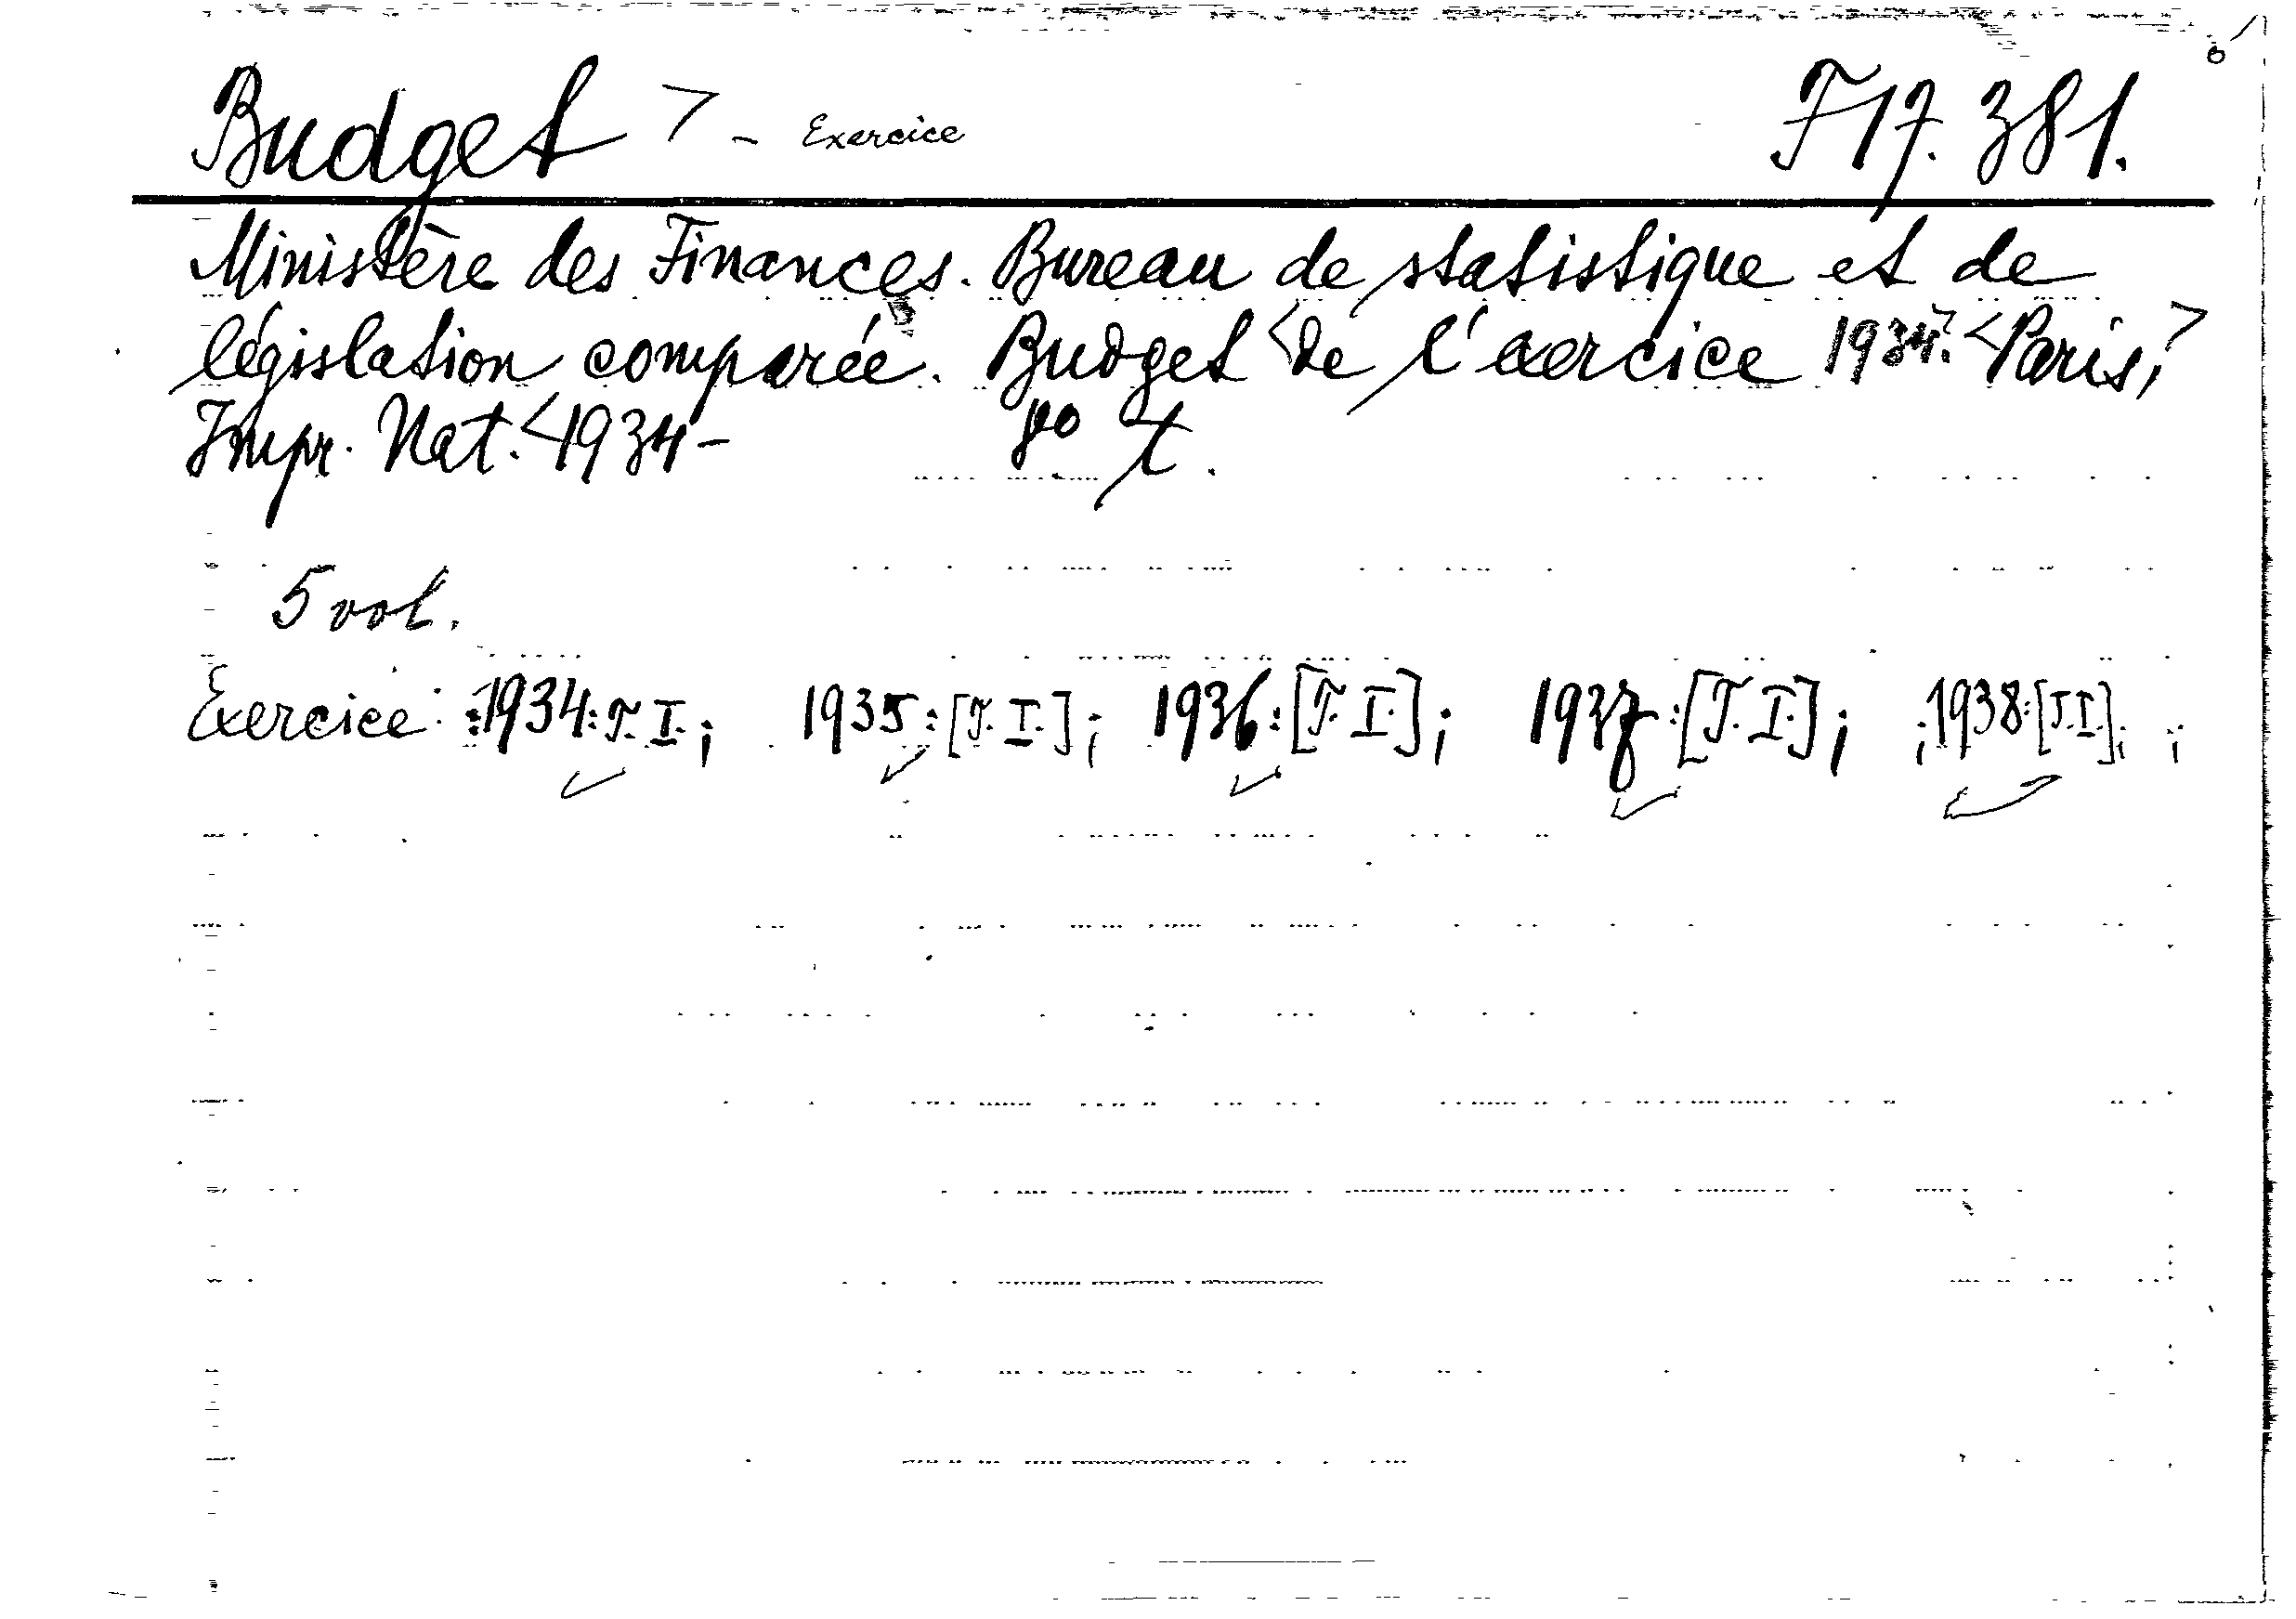 Budget > - Exercice F 17.381.
Ministère des Finances. Bureau de statistique et de
législation comparée. Budget <de l'exercice 1934.> <Paris,>
Impr. Nat. <1934- 8º t.
5 vol.
Exercice: 1934: T. I.; 1935: [T. I.]; 1936: [T. I.]; 1937: [T. I.]; 1938: [T. I.];